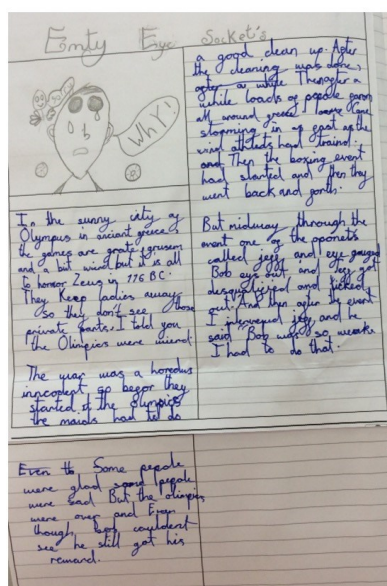 Emty Eye Socket's
WhY!
In the sunny city of
Olympus in anciant greece
the games are great, grusom
and a bit wierd but it is all
to honor Zeus in 776 BC.
They Keep ladies away
so they don't see those
private parts. I told you
the Olimpics were wierd.
The war was a horedus
inncodent so befor they
started the olympics
the maids had to do
a good clean up. After
the cleaning was done,
after a while Then after a
while loads of people
all around greece came
stomping in as fast as the
had traind.
and Then the boxing event
had started and then they
went back and forth.
But midway through the
event one of the oponets
called jeff and eye gouged
Bob eye out and Jeff got
desqulified and kicked
out. And then after the event
I interveiwd jeff and he
said "Bob was so weak
I had to do that.
Even th Some pepole
were glad some pepole
were sad But the olimpics
were over and Even
though bob couldent
see he still got his
reward.